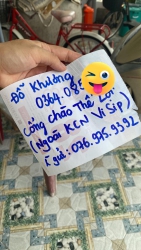 Đỗ Khương
0364.08
Cổng chào Thế Lợi
(Ngoài KCN Vi Sip)
gửi: 076.975.9392